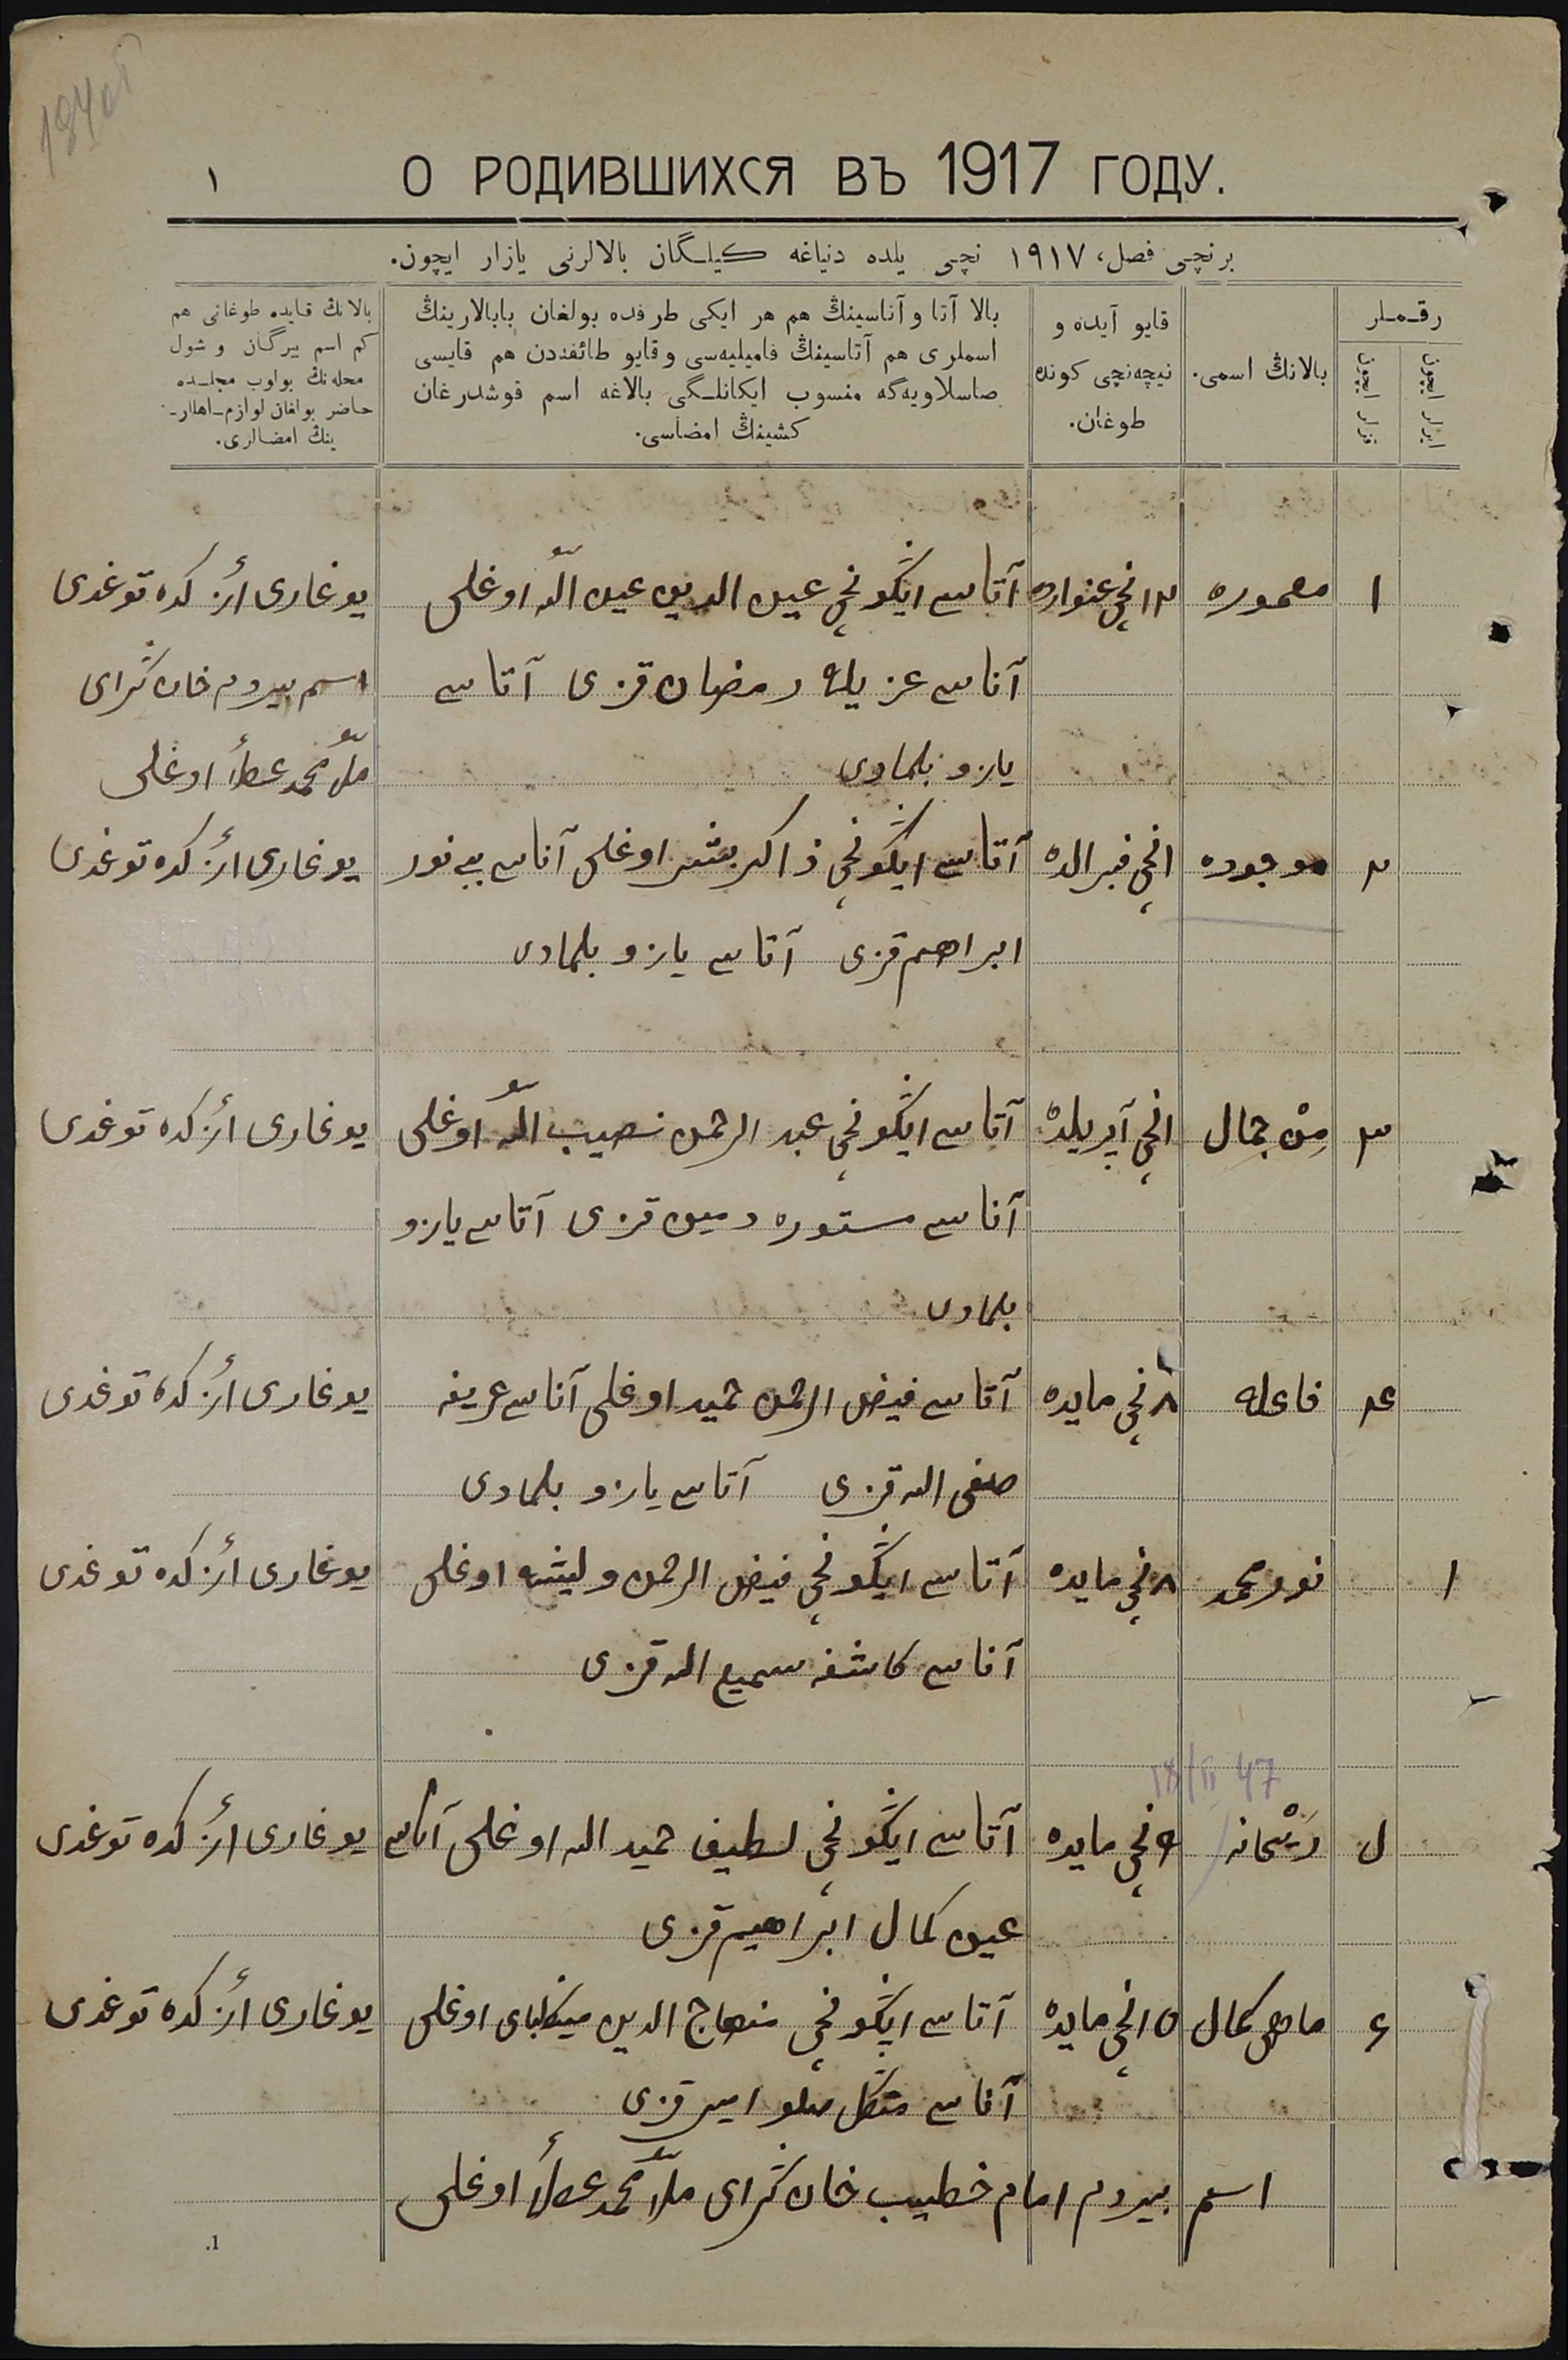 О РОДИВШИХСЯ ВЪ 1917 ГОДУ.
١
برنچی فصل، ١٩١٧ نچی یلده دنیاغه کیلگان بالالرنی یازار ایچون.
رقملر
ایرلر ایچون
قزلر ایچون
بالانڭ اسمی.
قایو آیده و
نیچه‌نچی کونده
طوغان.
بالا آتا و آناسینڭ هم هر ایکی طرفده بولغان بابالارینڭ
اسملری هم آتاسینڭ فامیلیه‌سی و قایو طائفه‌دن هم قایسی
صاسلاویه‌گه منسوب ایکانلگی بالاغه اسم قوشدرغان
کشینڭ امضاسی.
بالانڭ قایده طوغانی هم
کم اسم بیرگان و شول
محله‌نڭ بولوب مجلسده
حاضر بولغان لوازم اهللر-
ینڭ امضالری.
١ معموره ١٢نچی غنوارده آتاسی ایگونچی عین الدین عین الله اوغلی یوغاری أرز کده توغدی
آناسی عزیله رمضان قزی آتاسی اسم بیردم خان گرای
یازو بلمادی ملا محمد عطاأ اوغلی
٢ موجوده ١نچی فبرالده آتاسی ایگونچی ذاکر بشر اوغلی آناسی بی نور یوغاری أرز کده توغدی
ابراهیم قزی آتاسی یازو بلمادی
٣ مڭ جمال ١نچی آپریلده آتاسی ایگونچی عبد الرحمن نصیب الله اوغلی یوغاری أرز کده توغدی
آناسی مستوره قزی آتاسی یازو
بلمادی
٤ فاعله ٨نچی مایده آتاسی فیض الرحمن حمید اوغلی آناسی عریفه یوغاری أرز کده توغدی
صفی الله قزی آتاسی یازو بلمادی
١ نور محمد ٨نچی مایده آتاسی ایگونچی فیض الرحمن ولیشه اوغلی یوغاری أرز کده توغدی
آناسی کاشفه سمیع الله قزی
18/II 47
ریحانه ٩نچی مایده آتاسی ایگونچی لطیف حمید الله اوغلی آناسی یوغاری أرز کده توغدی
عین کمال ابراهیم قزی
٦ ماهی کمال ١٥نچی مایده آتاسی ایگونچی منهاج الدین مینگلبای اوغلی یوغاری أرز کده توغدی
آناسی قزی
اسم بیردم امام خطیب خان گرای ملا محمد عطاأ اوغلی
1.